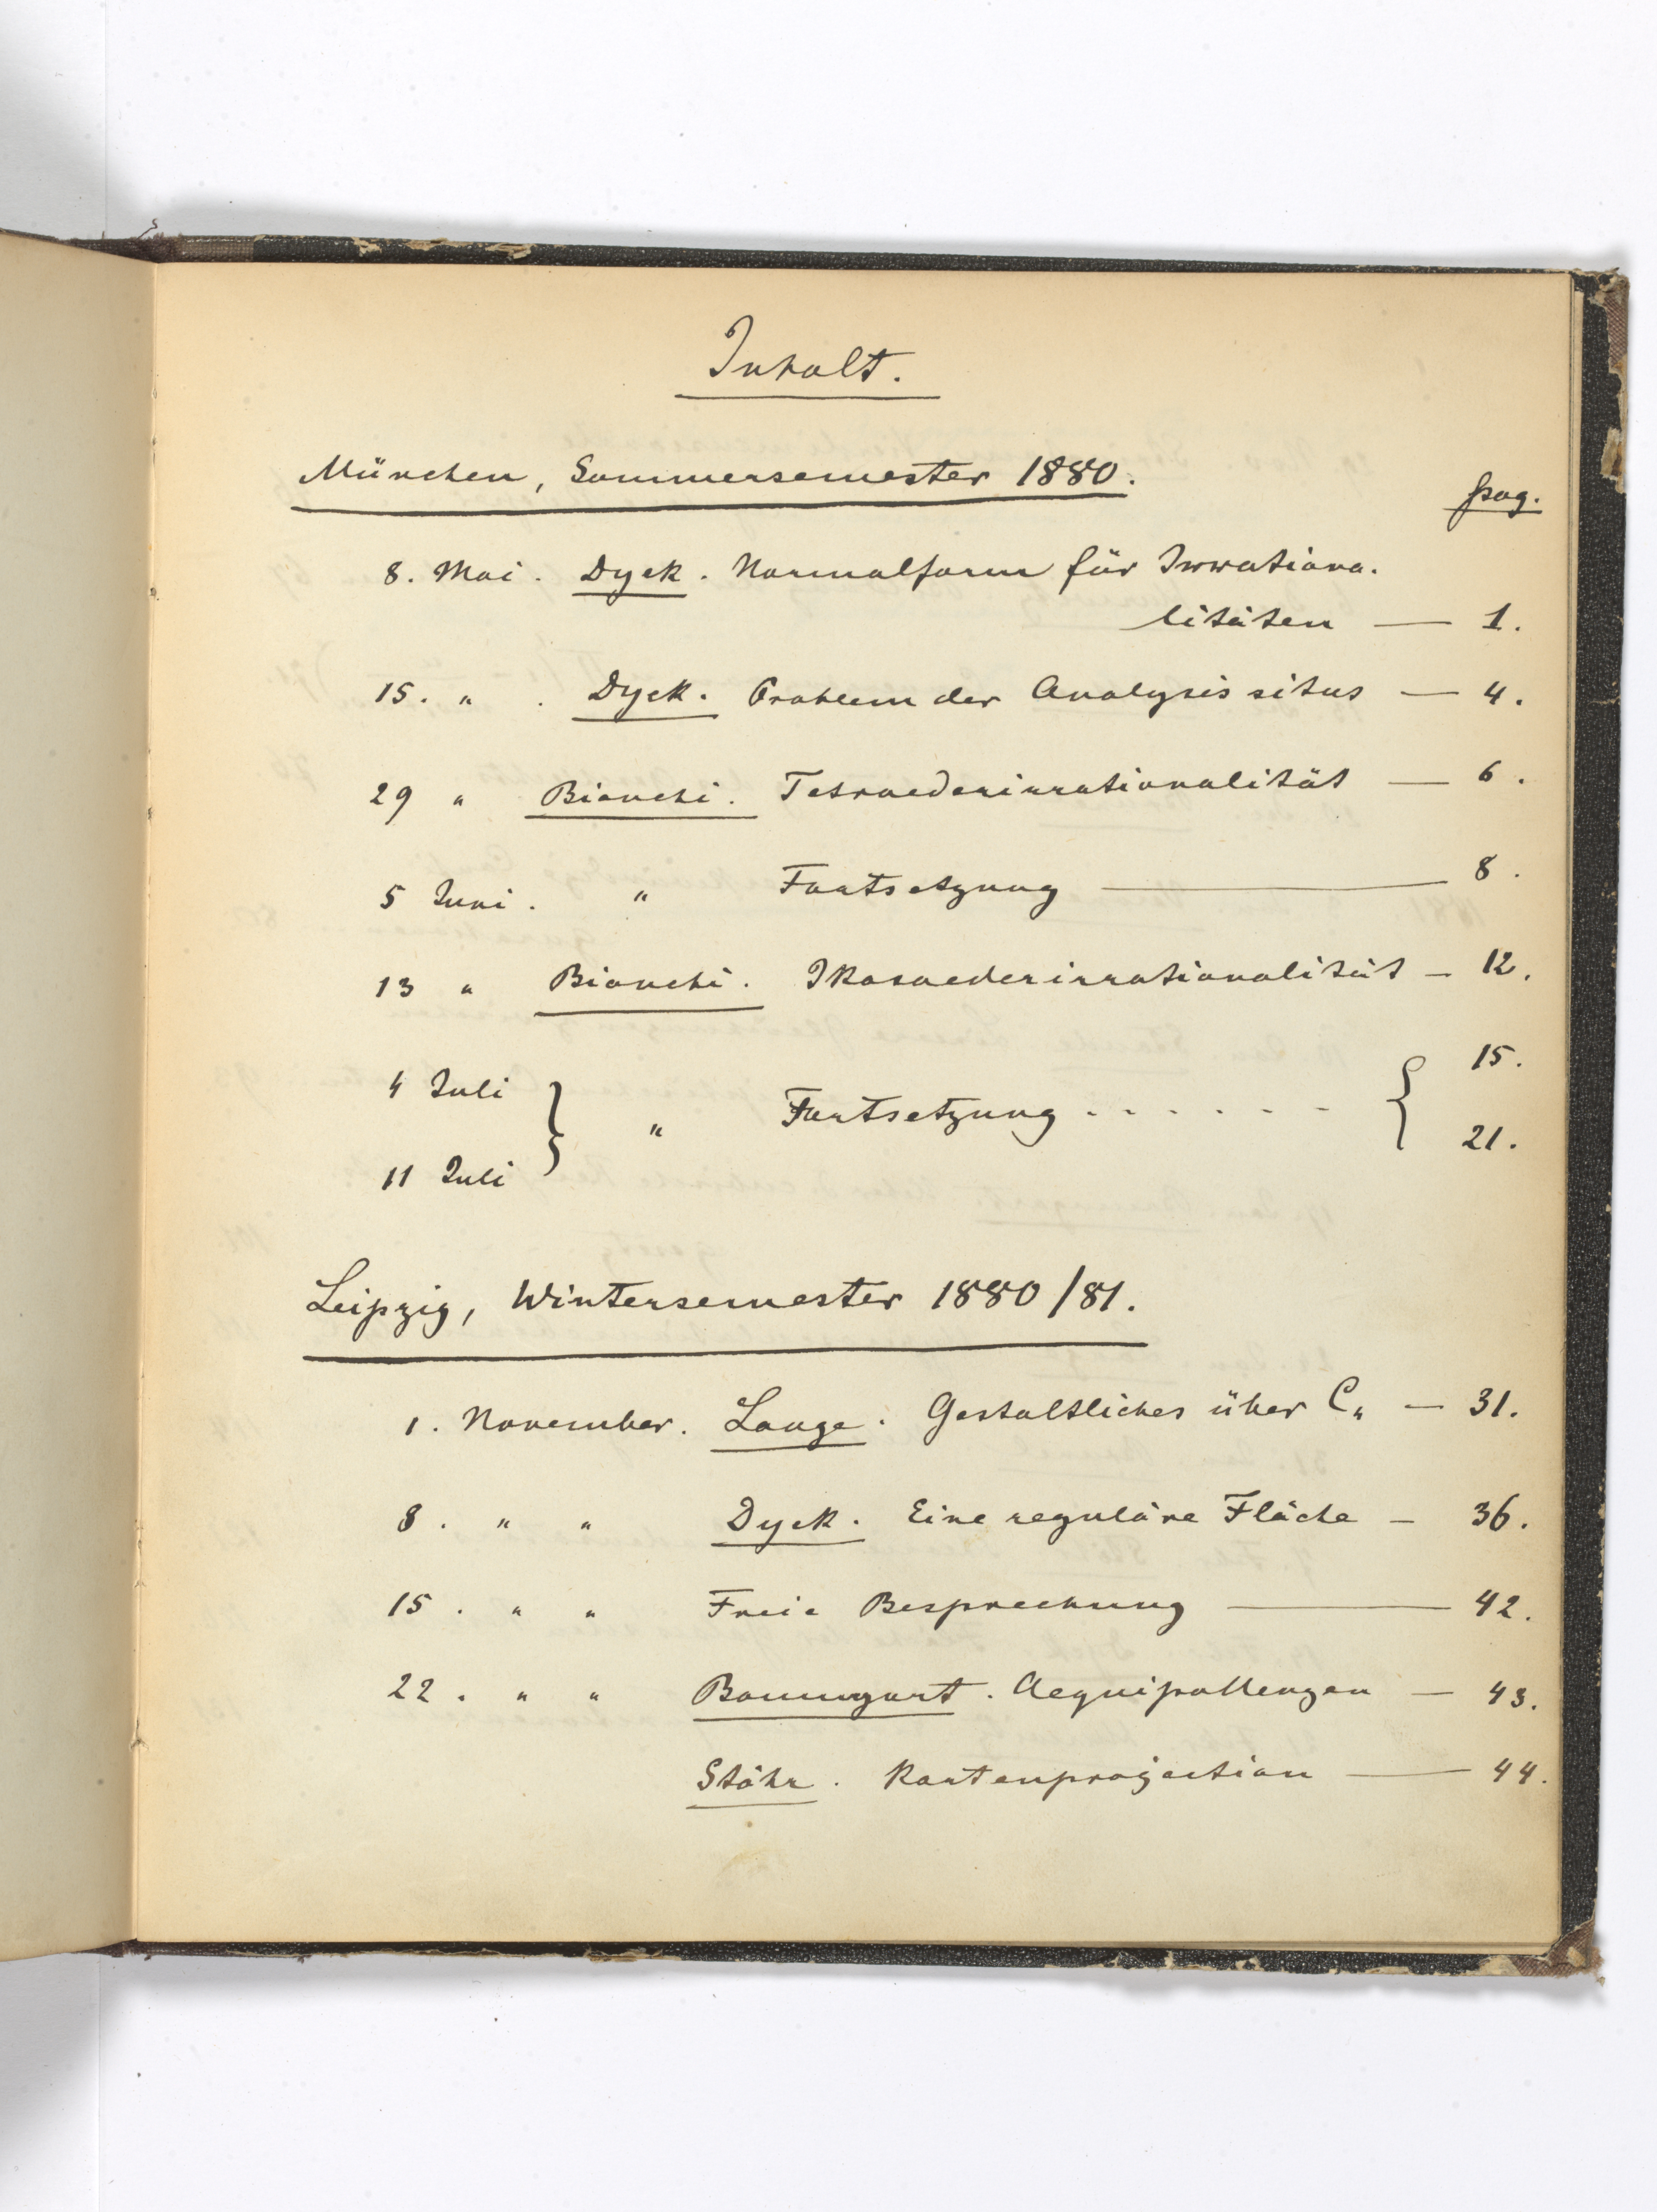 Inhalt.
München, Sommersemester 1880.
pag.
8. Mai. Dyck. Normalform für Irrationa-
litäten — 1.
15. " . Dyck. Problem der Analysis situs — 4.
29 " Bianchi. Tetraederirrationalität — 6.
5 Juni. " Fortsetzung — 8.
13 " Bianchi. Ikosaederirrationalität — 12.
4 Juli } " Fortsetzung . . . . . . { 15.
11 Juli 21.
Leipzig, Wintersemester 1880/81.
1. November. Lange. Gestaltliches über C₄ — 31.
8. " " Dyck. Eine reguläre Fläche — 36.
15. " " Freie Besprechung — 42.
22. " " Baumgart. Aequipollenzen — 43.
Stöhr. Kartenprojection — 44.